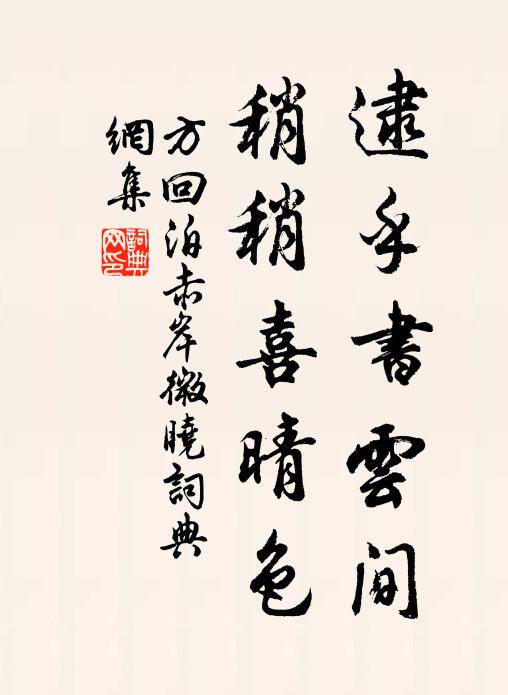 逮乎書雲間
稍稍喜晴色
方回泊赤岸微曉詞典
網集
詞典
网印